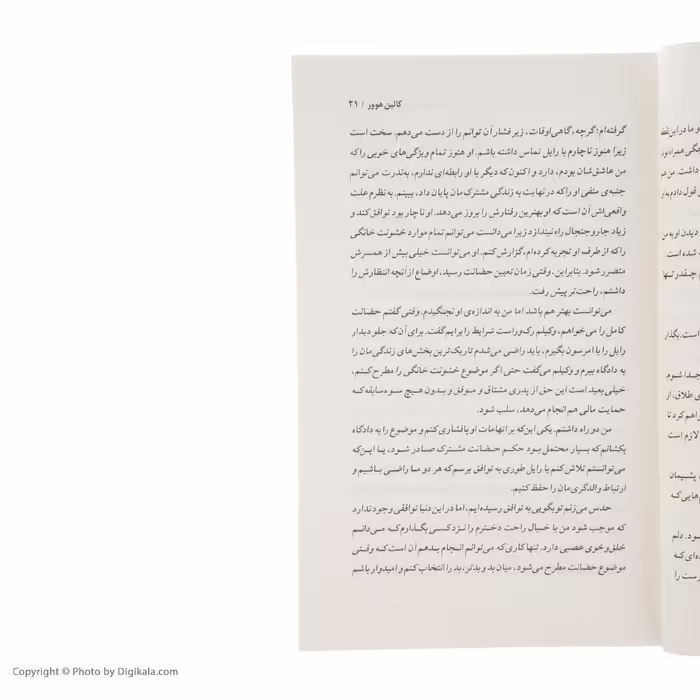 کالین هوور / ۲۱
گرفته‌ام؛ گرچه، گاهی اوقات، زیر فشار آن توانم را از دست می‌دهم. سخت است
زیرا هنوز ناچارم با رایل تماس داشته باشم. او هنوز تمام ویژگی‌های خوبی را که
من عاشق‌شان بودم، دارد و اکنون که دیگر با او رابطه‌ای ندارم، به‌ندرت می‌توانم
جنبه‌ی منفی او را که در نهایت به زندگی مشترک‌مان پایان داد، ببینم. به نظرم علت
واقعی‌اش آن است که او بهترین رفتارش را بروز می‌دهد. او ناچار بود توافق کند و
زیاد جار و جنجال راه نیندازد زیرا می‌دانست می‌توانم تمام موارد خشونت خانگی
را که از طرف او تجربه کرده‌ام، گزارش کنم. او می‌توانست خیلی بیش از همسرش
متضرر شود. بنابراین، وقتی زمان تعیین حضانت رسید، اوضاع از آنچه انتظارش را
داشتم، راحت‌تر پیش رفت.
می‌توانست بهتر هم باشد اما من به اندازه‌ی او نجنگیدم. وقتی گفتم حضانت
کامل را می‌خواهم، وکیلم رک‌وراست شرایط را برایم گفت. برای آن‌که جلو دیدار
رایل را با امرسون بگیرم، باید راضی می‌شدم تاریک‌ترین بخش‌های زندگی‌مان را
به دادگاه ببرم و وکیلم می‌گفت حتی اگر موضوع خشونت خانگی را مطرح کنم،
خیلی بعید است این حق از پدری مشتاق و موفق و بدون هیچ سوءسابقه که
حمایت مالی هم انجام می‌دهد، سلب شود.
من دو راه داشتم. یکی این‌که بر اتهامات او پافشاری کنم و موضوع را به دادگاه
بکشانم که بسیار محتمل بود حکم حضانت مشترک صادر شود، یا این‌که
می‌توانستم تلاش کنم با رایل طوری به توافق برسم که هر دو ما راضی باشیم و
ارتباط والدگری‌مان را حفظ کنیم.
حدس می‌زنم تو بگویی به توافق رسیده‌ایم، اما در این دنیا توافقی وجود ندارد
که موجب شود من با خیال راحت دخترم را نزد کسی بگذارم که می‌دانم
خلق‌وخوی عصبی دارد. تنها کاری که می‌توانم انجام بدهم آن است که وقتی
موضوع حضانت مطرح می‌شود، میان بد و بدتر، بد را انتخاب کنم و امیدوار باشم
و ما در این نقطه
داشت. من هم
قول دادم به او
دیدن او به من
شده است.
چقدر تنها
است. بگذار
جدا شوم.
طلاق، از
لازم است
پشیمان
دلم
Copyright © Photo by Digikala.com